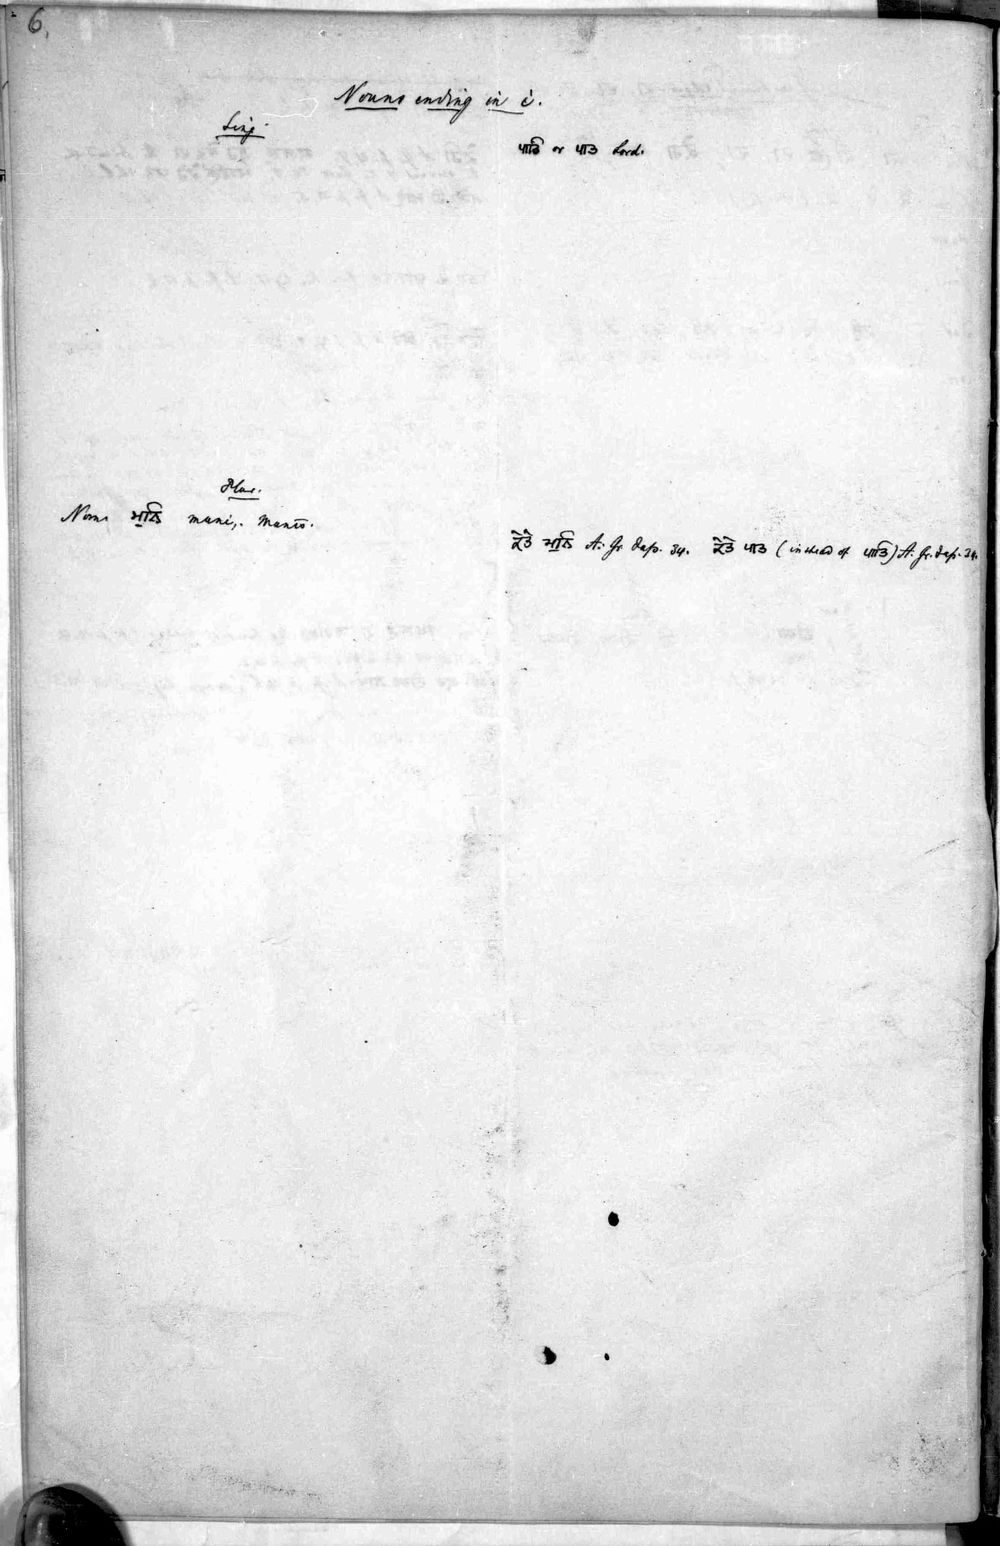 6.
Nouns ending in i.
Sing.
ਪਤਿ or ਪਤ Lord.
Plur.
Nom. ਮੁਨਿ muni, munis.
ਕੇਤੇ ਮੁਨਿ A. Gr. Jap. 34. ਕੇਤੇ ਪਤ (instead of ਪਤਿ) A. Gr. Jap. 34.